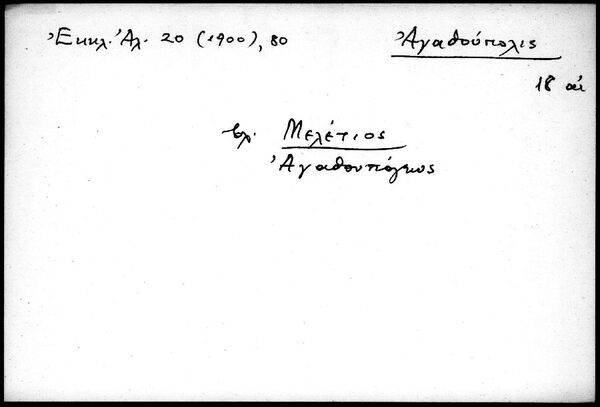 Ἐκκλ. Ἀλ. 20 (1900), 80
Ἀγαθούπολις
18 αἰ
βλ. Μελέτιος
Ἀγαθουπόλεως